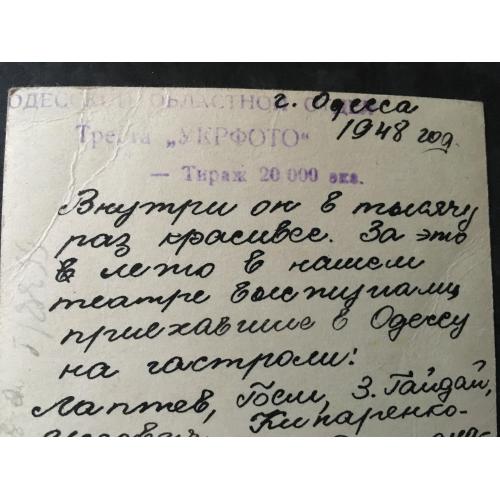 ОДЕССКИЙ ОБЛАСТНОЙ
г. Одесса
Треста „УКРФОТО“
1948 год.
— Тираж 20 000 экз.
Внутри он в тысячу
раз красивее. За это
в лето в нашем
театре выступали
приехавшие в Одессу
на гастроли:
Лаптев, З. Гайдай,
Кипаренко-